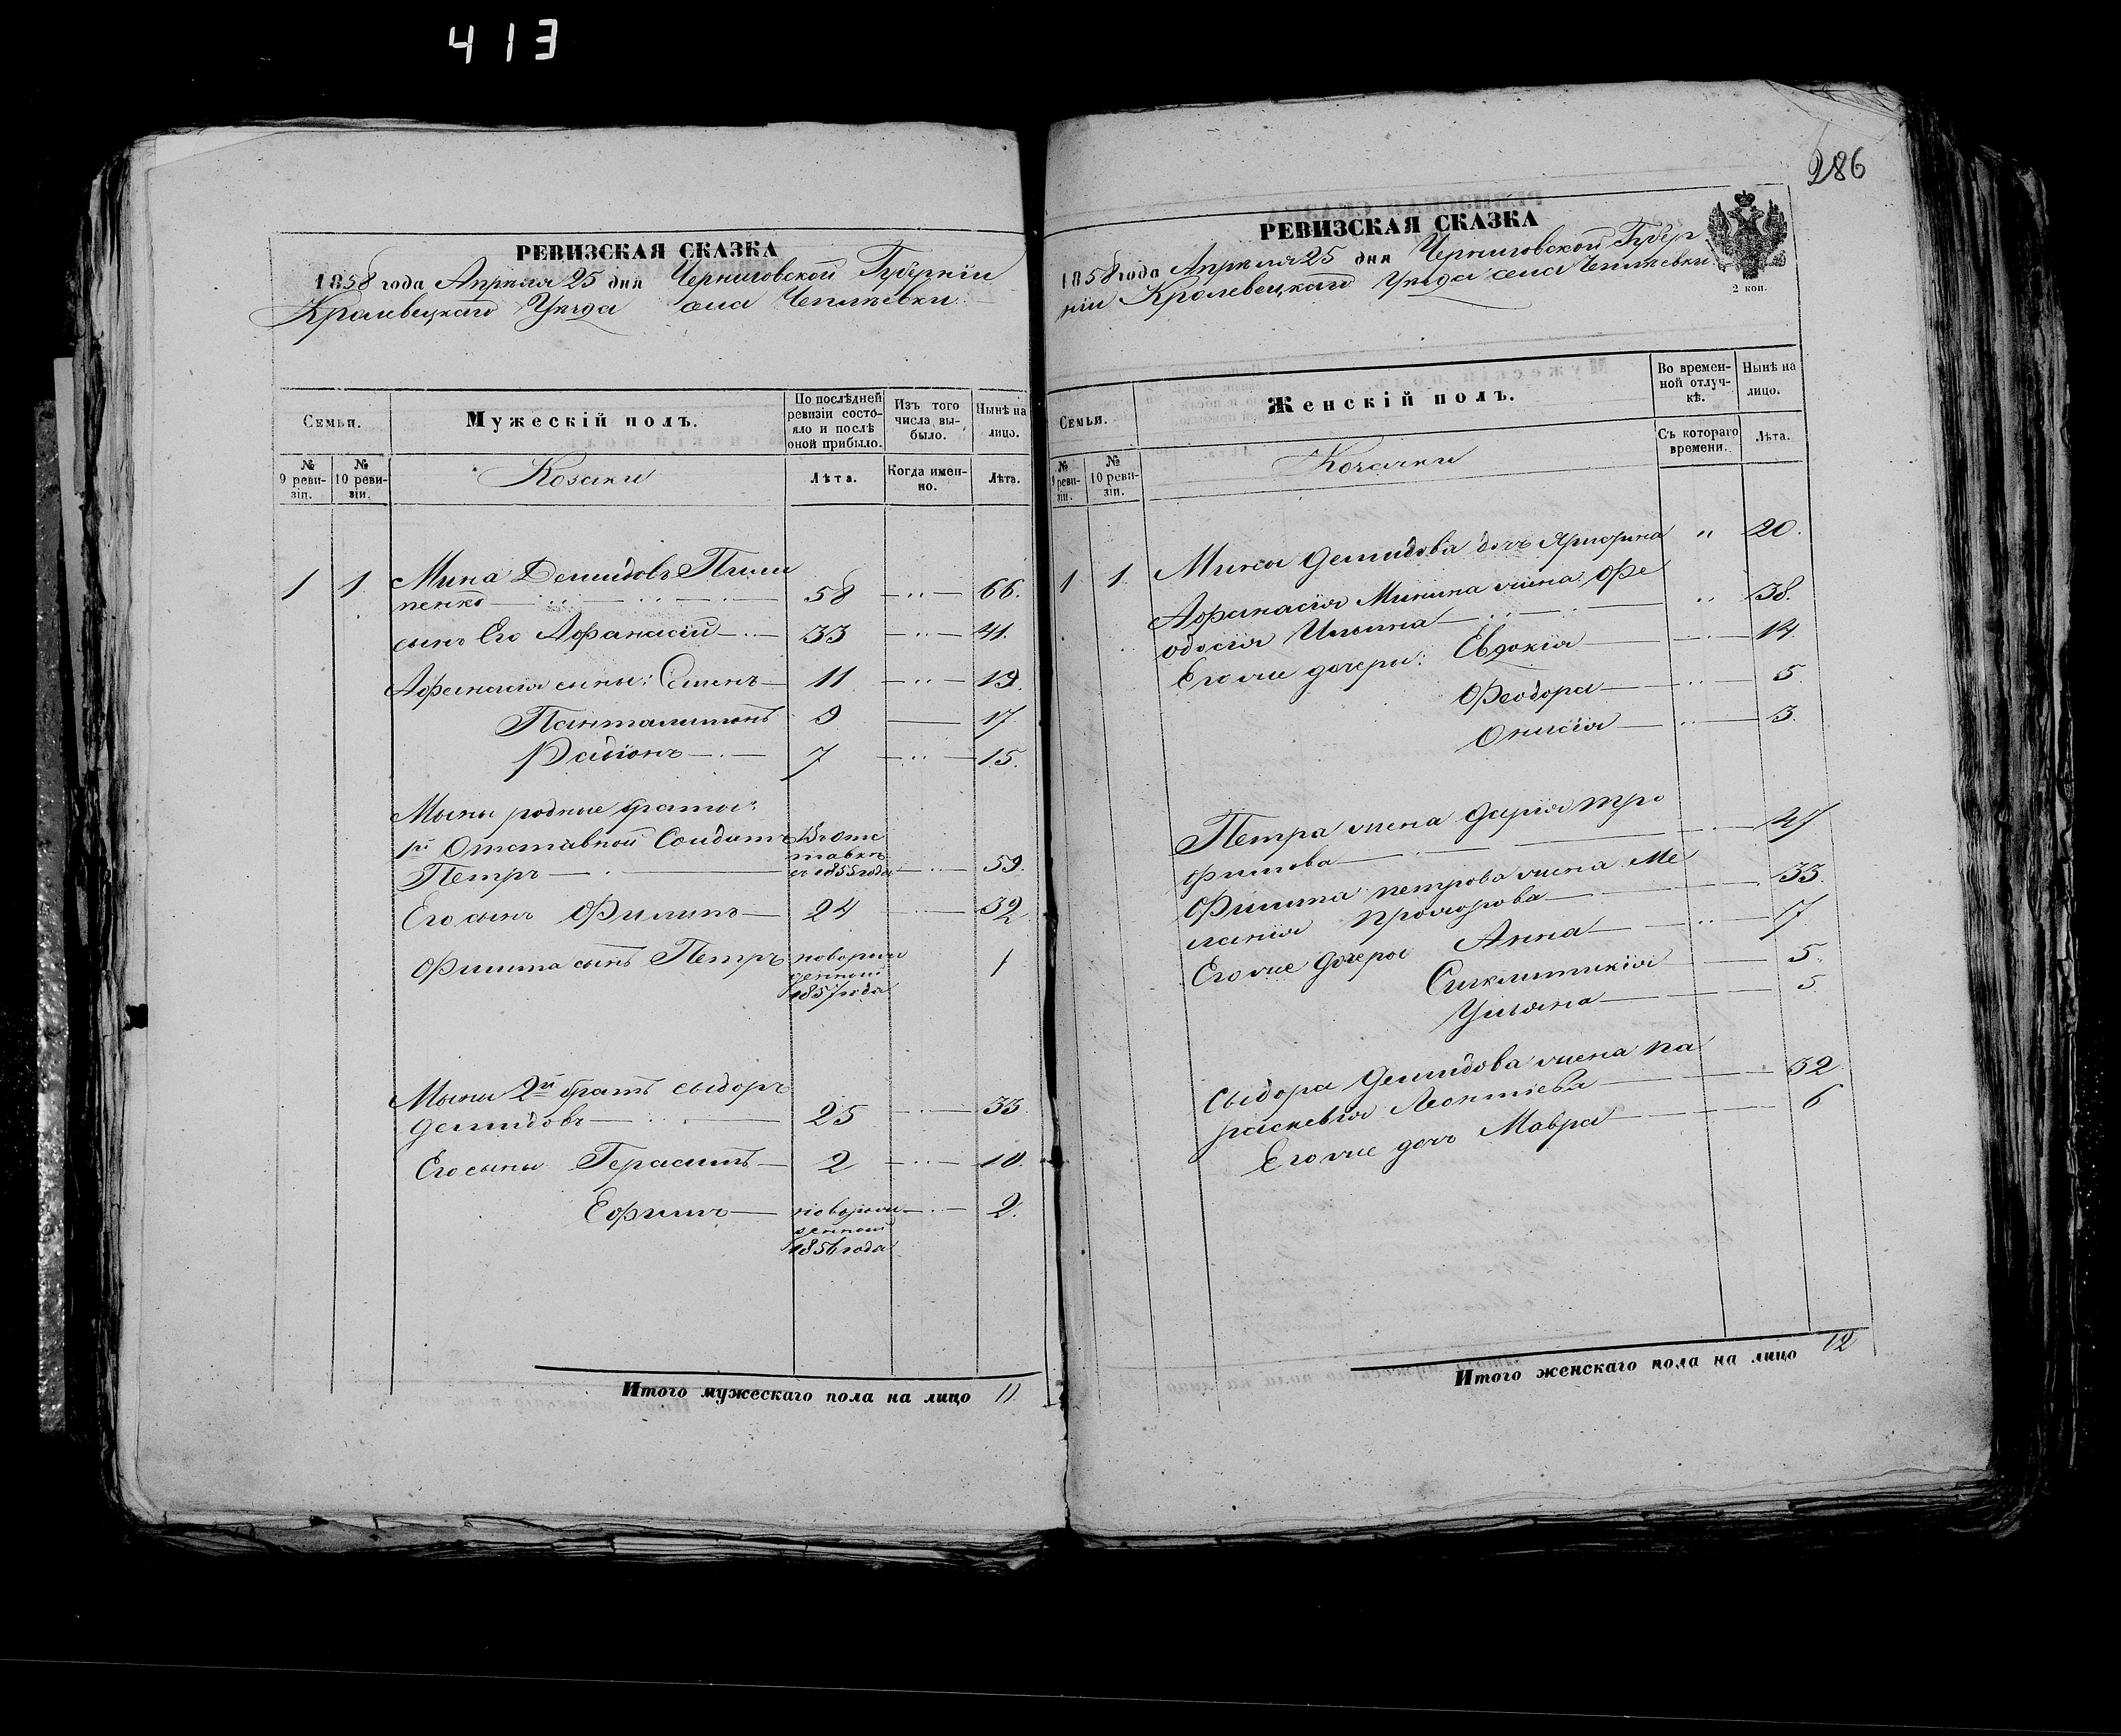 413
286
РЕВИЗСКАЯ СКАЗКА
1858 года Апреля 25 дня Черниговской Губернiи
Кролевецкаго Уезда села
Семьи.
Мужескiй полъ.
По послѣдней ревизiи состояло и послѣ оной прибыло.
Изъ того числа выбыло.
Нынѣ на лицо.
№ 9 ревизiи.
№ 10 ревизiи.
Козаки
Лѣта.
Когда именно.
Лѣта.
1 1 Мина Демидовъ Пили
пенко 58 66.
сынъ Его Афанасiй 33 41.
Афанасiя сыны: Семенъ 11 19.
Панталимонъ 9 17
7 15.
Мины родные братья:
1й Отставной Солдатъ Въ отс
тавке
Петръ съ 1855 года 59.
Его сынъ Филипъ 24 32
Филипа сынъ Петръ новорож
денный
1857 года 1
Мины 2й братъ Сыдоръ
Демидовъ 25 33
Его сыны Герасимъ 2 10.
Ефимъ новорож 2.
денный
1856 года
Итого мужескаго пола на лицо 11
РЕВИЗСКАЯ СКАЗКА
1858 года Апреля 25 дня Черниговской Губер
нiи Кролевецкаго Уезда села
2 коп.
Семьи.
Женскiй полъ.
Во временной отлучкѣ.
Нынѣ на лицо.
№ 9 ревизiи.
№ 10 ревизiи.
Козачки
Съ котораго времени.
Лѣта.
1 1. Мины Демидова дочъ 20.
Афанасiя Минина жена: Фе
одосiя Ильина 38.
Его же дочери: Евдокiя 14
Феодора 5.
Онисiя 3.
Петра жена Дарiя Тро
фимова 47
Филипа Петрова жена Ме
ланiя 33.
Его же дочери Анна 7
Сиклитикiя 5.
Ульяна 5
Сыдора Демидова жена Па
раскевiя Леонтiева 32
Его же дочъ Мавра 6
Итого женскаго пола на лицо 12